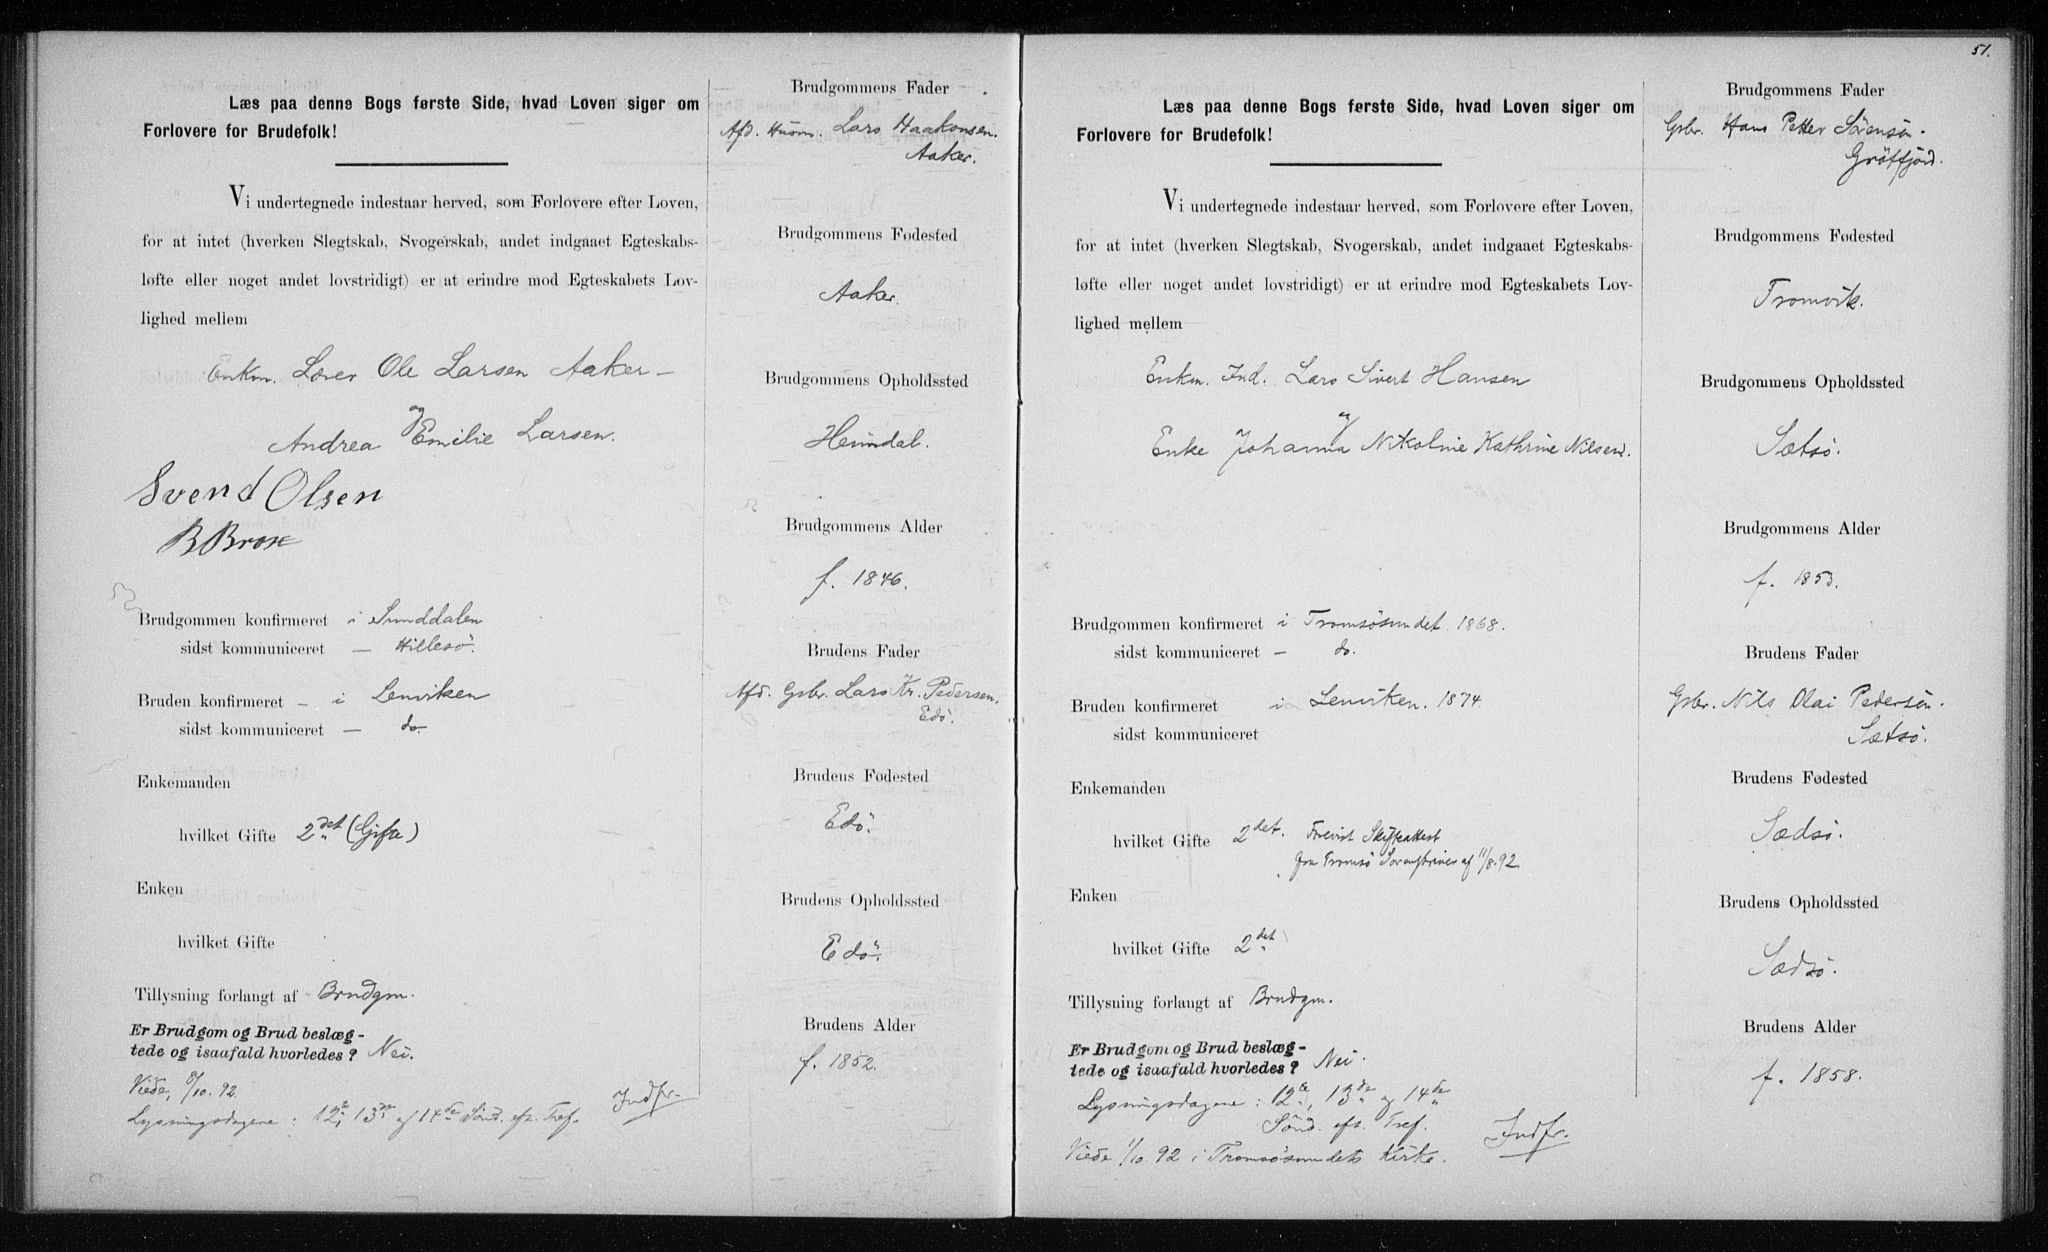 Læs paa denne Bogs første Side, hvad Loven siger om
Forlovere for Brudefolk!
Vi undertegnede indestaar herved, som Forlovere efter Loven,
for at intet (hverken Slegtskab, Svogerskab, andet indgaaet Egteskabs-
løfte eller noget andet lovstridigt) er at erindre mod Egteskabets Lov-
lighed mellem
Enkm. Lærer Ole Larsen Aaker –
og
Andrea Emilie Larsen.
Svend Olsen
B Brox
Brudgommen konfirmeret i Sunddalen
sidst kommuniceret — Hillesö.
Bruden konfirmeret – i Lenviken
sidst kommuniceret — do
Enkemanden
hvilket Gifte 2det (Gifte)
Enken
hvilket Gifte
Tillysning forlangt af Brudgm.
Er Brudgom og Brud beslæg-
tede og isaafald hvorledes? Nei.
Viede, 8/10. 92.
Lysningsdagene : 12te, 13de og 14de Sönd. eft. Tref. Indfr.
Brudgommens Fader
Afd. Husm. Lars Haakonsen.
Aaker.
Brudgommens Fødested
Aaker.
Brudgommens Opholdssted
Heimdal.
Brudgommens Alder
f. 1846.
Brudens Fader
Afd. Gsbr. Lars Kr. Pedersen.
Edö.
Brudens Fødested
Edö.
Brudens Opholdssted
Edö.
Brudens Alder
f. 1852.
51.
Læs paa denne Bogs første Side, hvad Loven siger om
Forlovere for Brudefolk!
Vi undertegnede indestaar herved, som Forlovere efter Loven,
for at intet (hverken Slegtskab, Svogerskab, andet indgaaet Egteskabs-
løfte eller noget andet lovstridigt) er at erindre mod Egteskabets Lov-
lighed mellem
Enkm. Ind. Lars Sivert Hansen
og
Enke Johanna Nikoline Kathrine Nilsen.
Brudgommen konfirmeret i Tromsösundet 1868.
sidst kommuniceret – do.
Bruden konfirmeret i Lenviken. 1874
sidst kommuniceret
Enkemanden
hvilket Gifte 2det. Forevist Skifteattest
fra Tromsö Sorenskriveri af 11/8. 92.
Enken
hvilket Gifte 2det
Tillysning forlangt af Brudgm.
Er Brudgom og Brud beslæg-
tede og isaafald hvorledes? Nei.
Lysningsdagene : 12te, 13de og 14de
Sönd. eft. Tref. Indfr.
Viede 1/10. 92 i Tromsösundets Kirke.
Brudgommens Fader
Gsbr. Hans Petter Sörensen.
Gröttfjord.
Brudgommens Fødested
Tromvik.
Brudgommens Opholdssted
Sætsö.
Brudgommens Alder
f. 1853.
Brudens Fader
Gsbr. Nils Olai Pedersen.
Sætsö.
Brudens Fødested
Sædsö.
Brudens Opholdssted
Sædsö.
Brudens Alder
f. 1858.